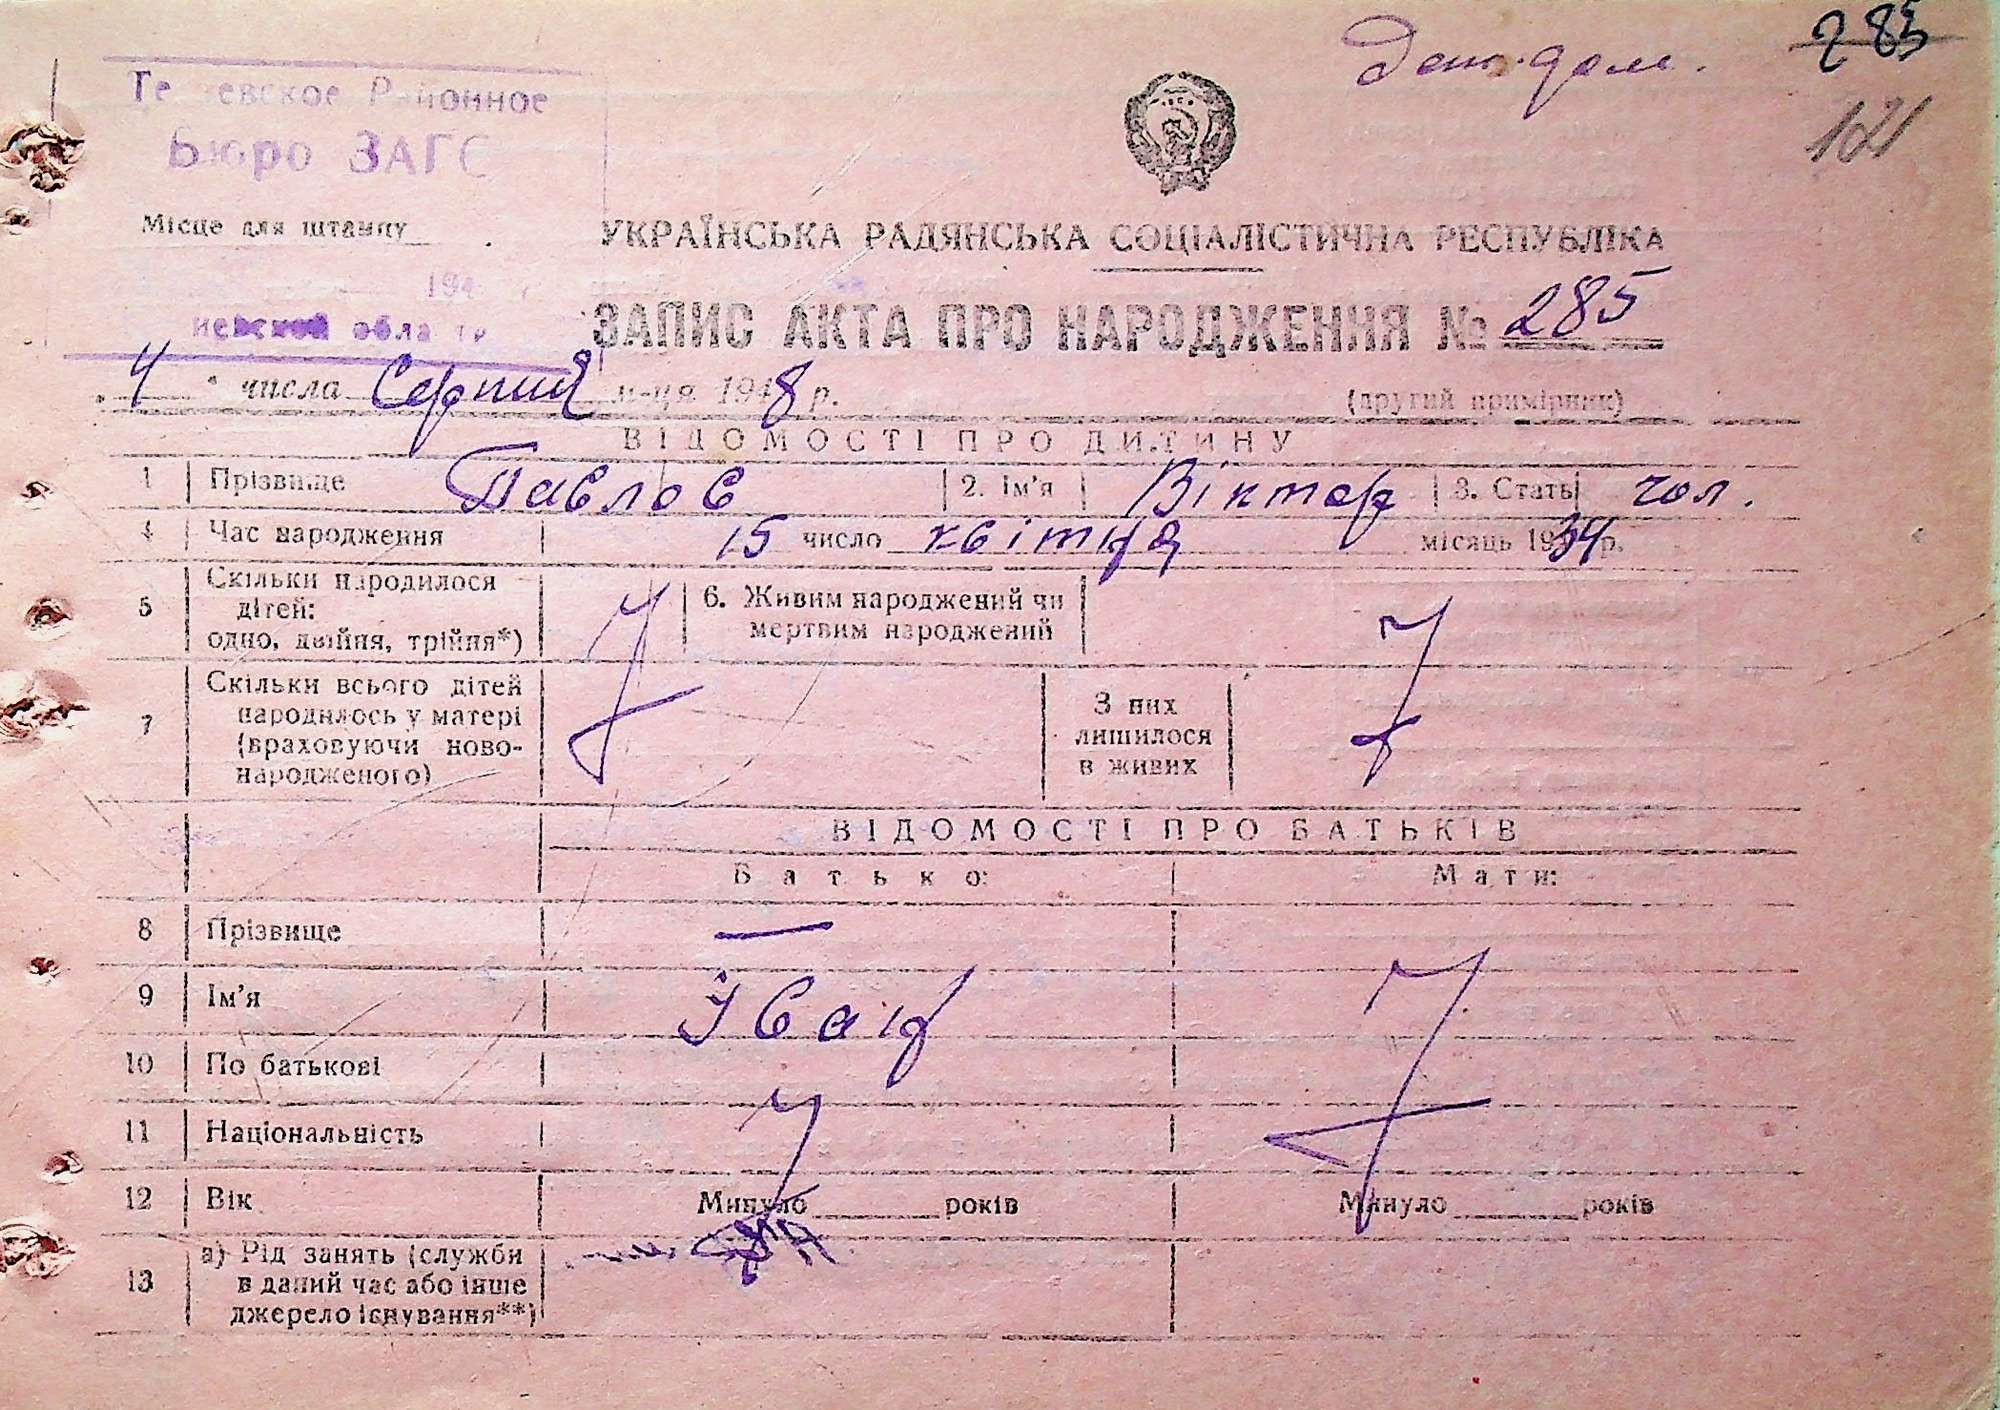 Дет. дом.
285
121
Районное
Бюро ЗАГС
Місце для штампу
194
обла
УКРАЇНСЬКА РАДЯНСЬКА СОЦІАЛІСТИЧНА РЕСПУБЛІКА
ЗАПИС АКТА ПРО НАРОДЖЕННЯ № 285
4 " числа Серпня м-ця 1948 р. (другий примірник)
ВІДОМОСТІ ПРО ДИТИНУ
1 Прізвище Павлов 2. Ім'я Віктор 3. Стать чол.
4 Час народження 15 число квітня місяць 1934 р.
5 Скільки народилося дітей: одно, двійня, трійня*) 6. Живим народжений чи мертвим народжений
7 Скільки всього дітей народилось у матері (враховуючи новонародженого) З них лишилося в живих
ВІДОМОСТІ ПРО БАТЬКІВ
Батько: Мати:
8 Прізвище —
9 Ім'я Іван
10 По батькові
11 Національність
12 Вік Минуло ______ років Минуло ______ років
13 а) Рід занять (служби в даний час або інше джерело існування**)